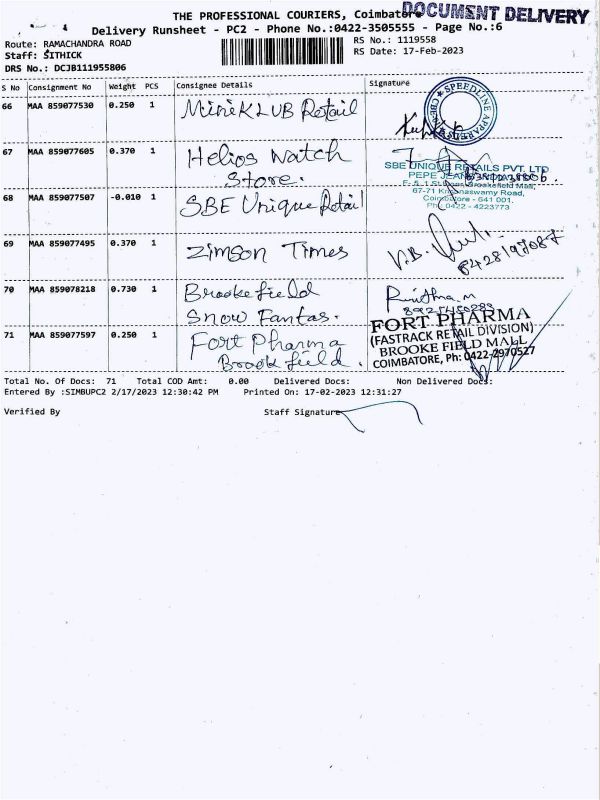 THE PROFESSIONAL COURIERS, Coimbatore
DOCUMENT DELIVERY
Delivery Runsheet - PC2 - Phone No.:0422-3505555 - Page No.:6
Route: RAMACHANDRA ROAD
RS No.: 1119558
Staff: SITHICK
RS Date: 17-Feb-2023
DRS No.: DCJB111955806
S No Consignment No Weight PCS Consignee Details Signature
66 MAA 859077530 0.250 1 MiniKLUB Retail
SPEEDLINE
67 MAA 859077605 0.370 1 Helios Watch
Store.
SBE UNIQUE RETAILS PVT. LTD
PEPE JEANS
Coimbatore - 641 001.
Ph: 0422 - 4223773
68 MAA 859077507 -0.010 1 SBE Unique Retail
69 MAA 859077495 0.370 1 Zimson Times
70 MAA 859078218 0.730 1 Brookefield
Snow Fantas.
71 MAA 859077597 0.250 1 Fort Pharma
Brook field.
FORT PHARMA
(FASTRACK RETAIL DIVISION)
BROOKE FIELD MALL
COIMBATORE, Ph: 0422-2970527
Total No. Of Docs: 71 Total COD Amt: 0.00 Delivered Docs: Non Delivered Docs:
Entered By :SIMBUPC2 2/17/2023 12:30:42 PM Printed On: 17-02-2023 12:31:27
Verified By Staff Signature